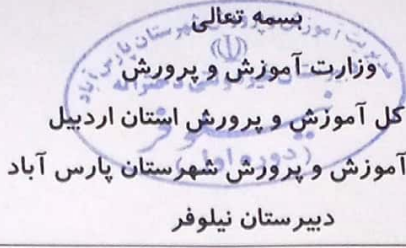 بسمه تعالی
وزارت آموزش و پرورش
کل آموزش و پرورش استان اردبیل
آموزش و پرورش شهرستان پارس آباد
دبیرستان نیلوفر